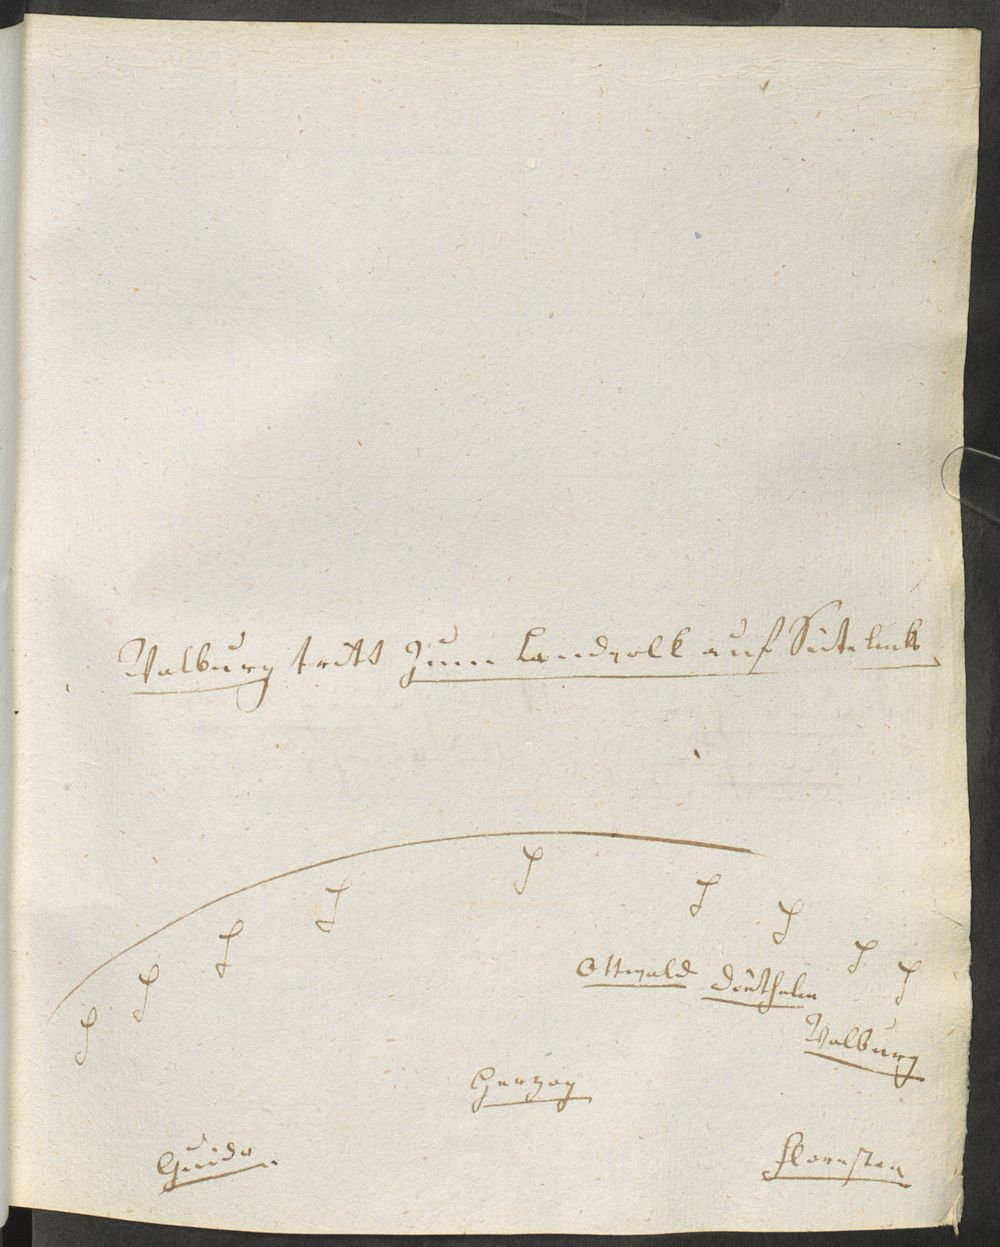 Walburg tritt zum Landvolk auf Seite links
Ottwald Diethelm
Walburg
Herzog
Guido
Florestan